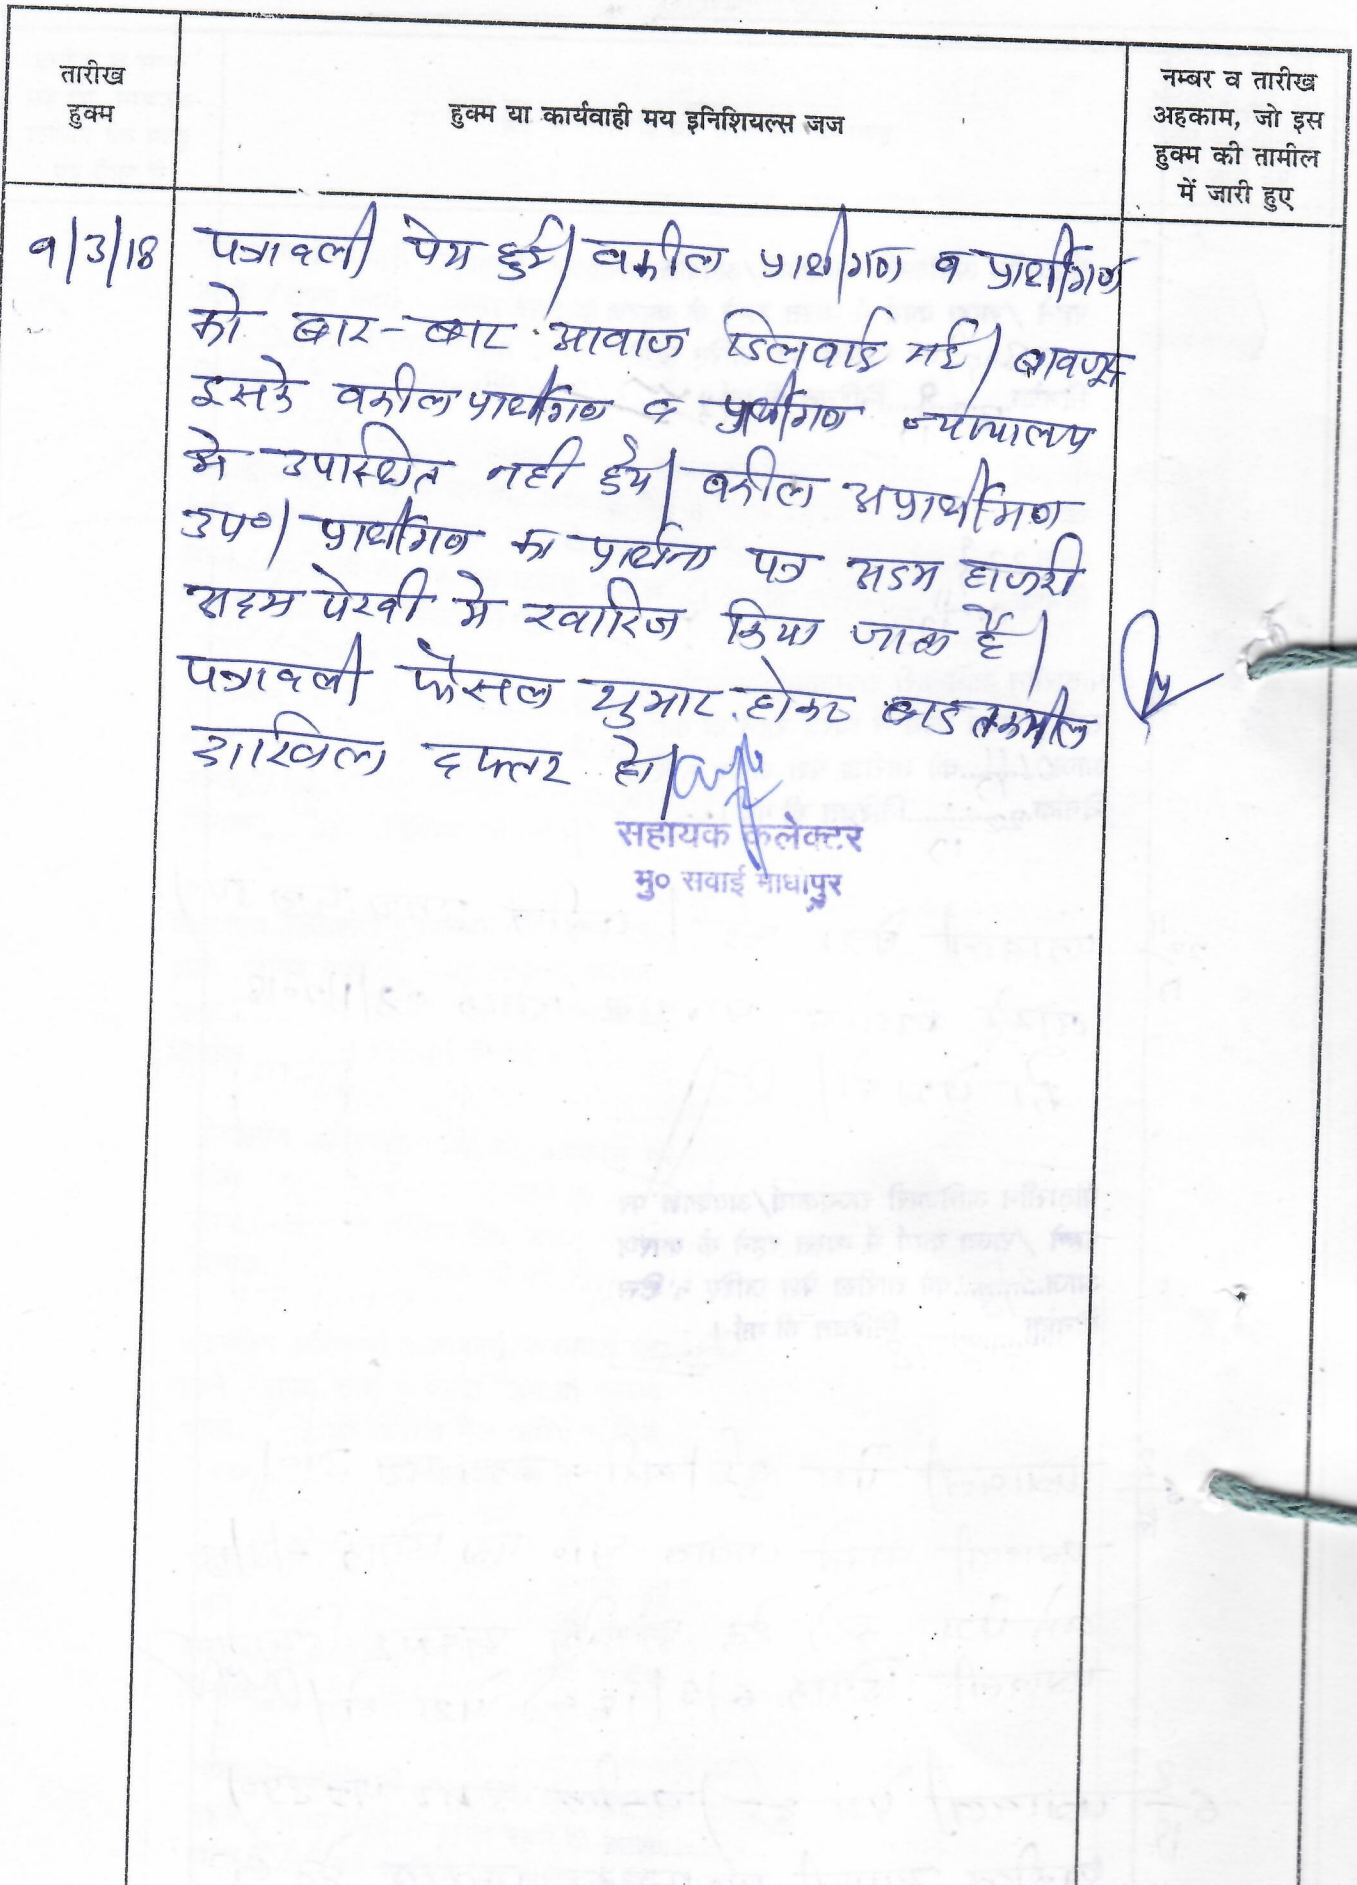 तारीख
हुक्म
हुक्म या कार्यवाही मय इनिशियल्स जज
नम्बर व तारीख
अहकाम, जो इस
हुक्म की तामील
में जारी हुए
9/3/18
पत्रावली पेश हुई। वकील प्रार्थीगण व प्रार्थीगण
को बार-बार आवाज दिलवाई गई। बावजूद
इसके वकील प्रार्थीगण व प्रार्थीगण न्यायालय
मे उपास्थित नही हुये। वकील अप्रार्थीगण
उप०। प्रार्थीगण का प्रार्थना पत्र अदम हाजरी
अदम पेरवी मे खारिज किया जाता है।
पत्रावली फैसल शुमार होकर बाद तकमील
दाखिल दफ्तर हो।
सहायक कलेक्टर
मु० सवाई माधोपुर